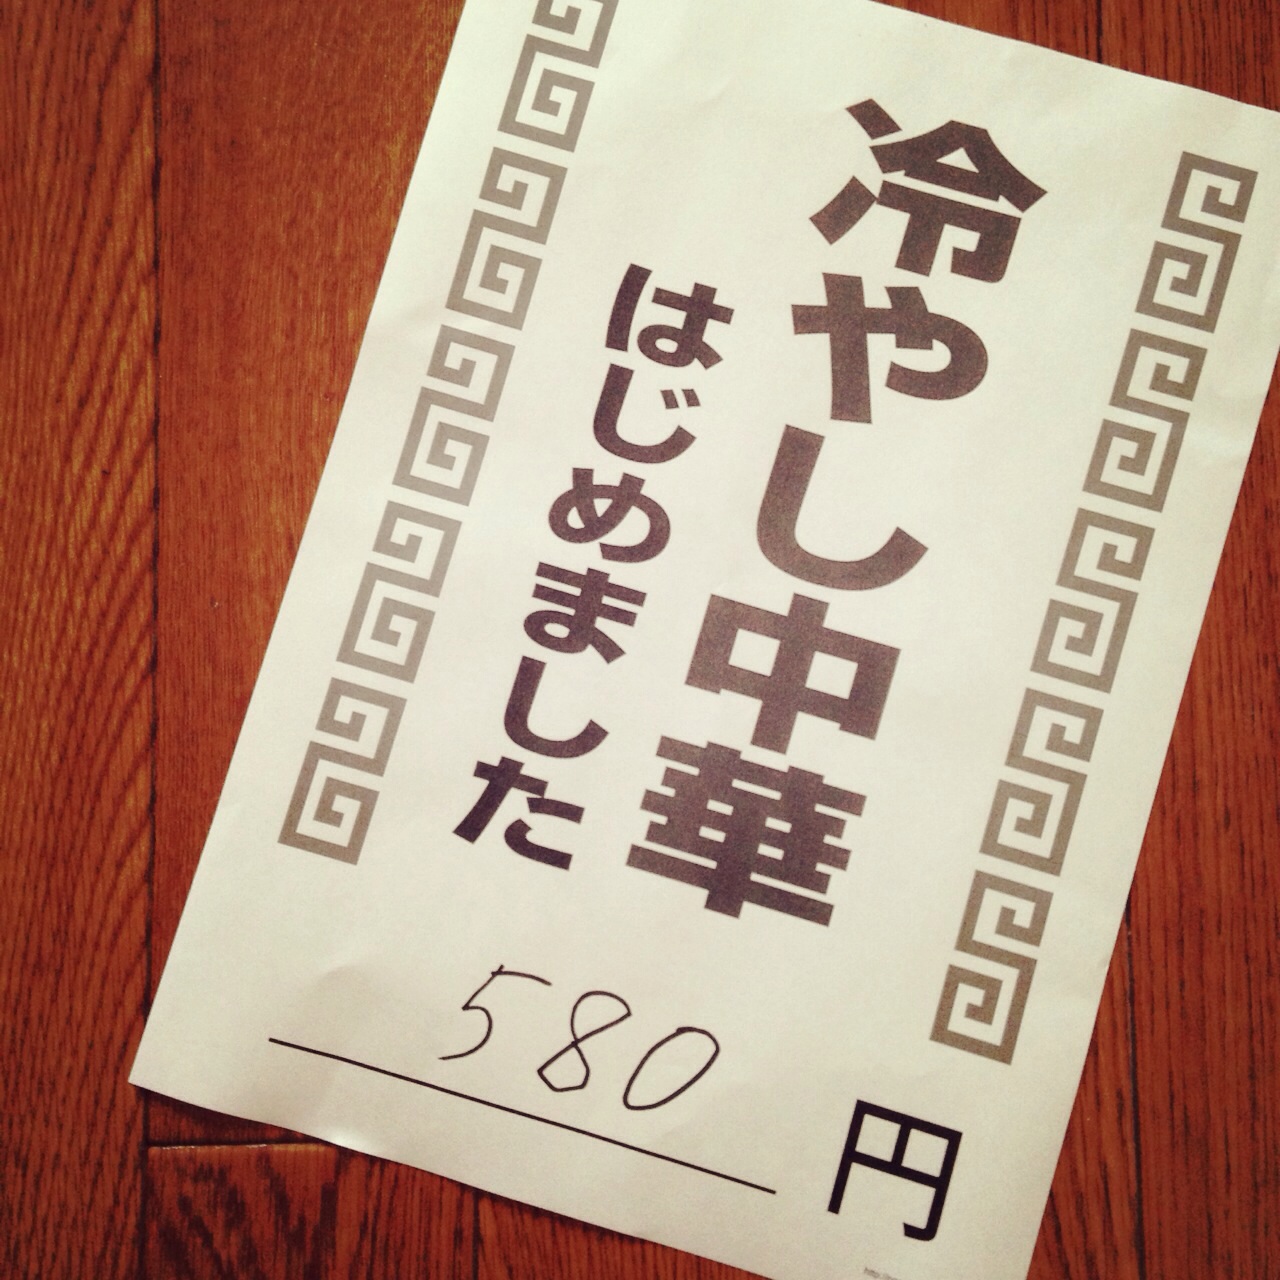 冷やし中華
はじめました
580
円